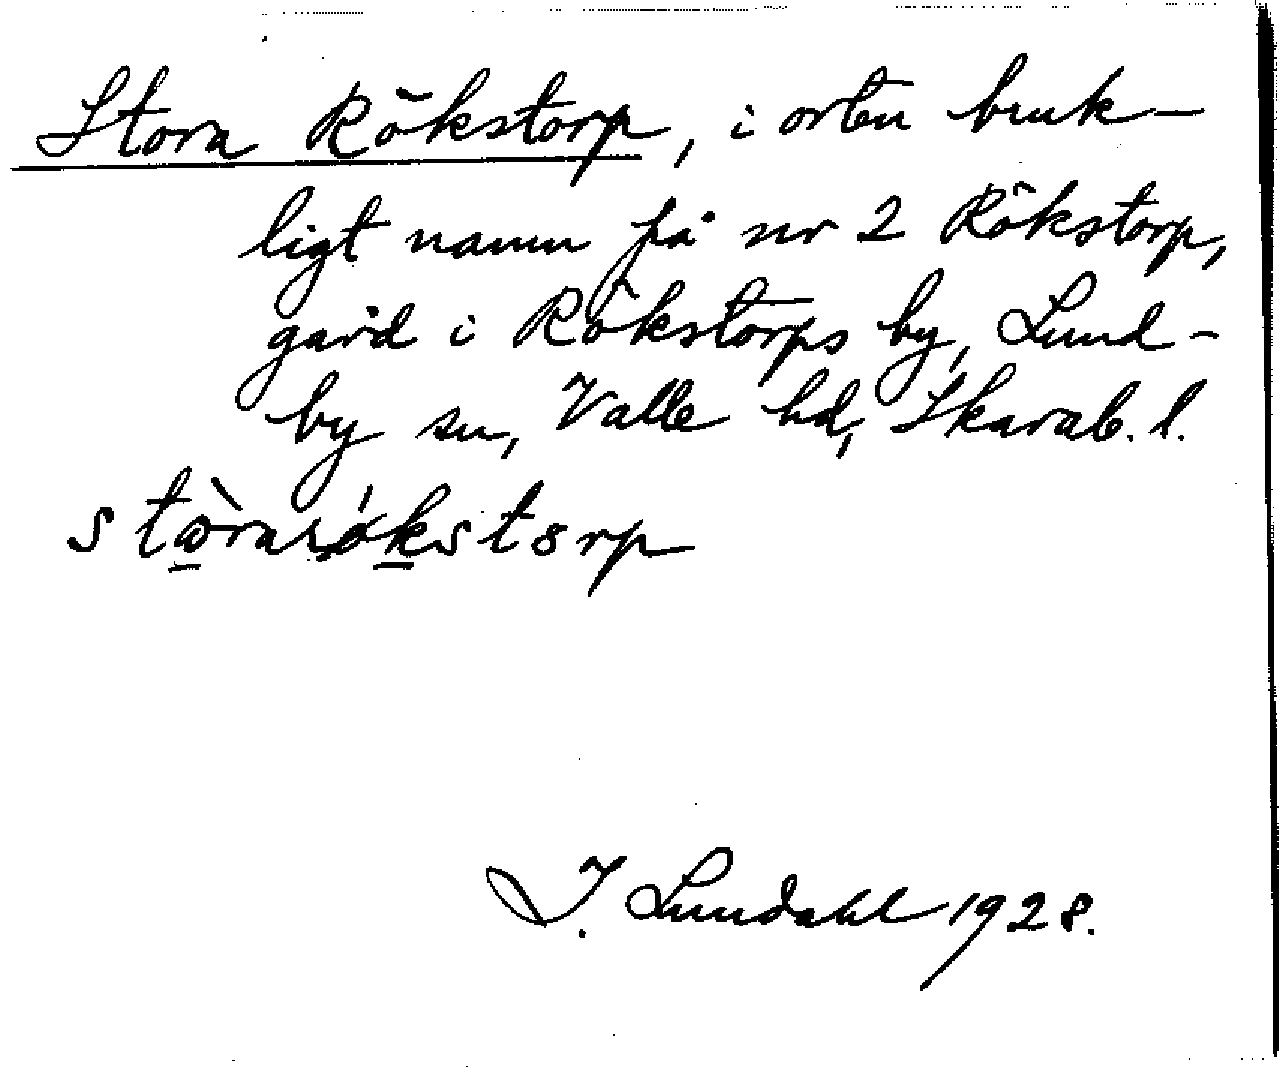 Stora Rökstorp, i orten bruk-
ligt namn på nr 2 Rökstorp,
gård i Rökstorps by, Lund-
by sn, Valle hd, Skarab. l.
I. Lundahl 1928.